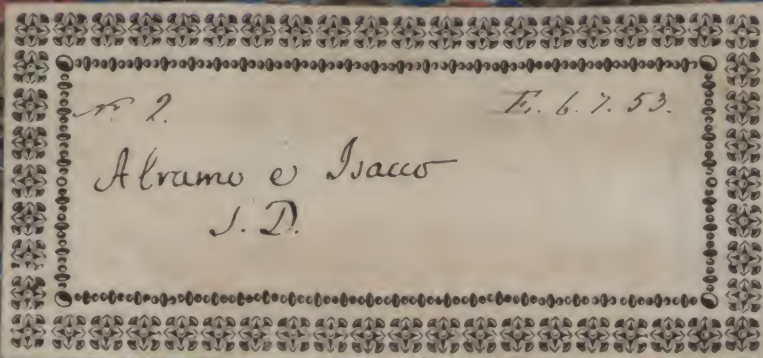 No. 2. E. 6. 7. 53.
Abramo e Isacco
S. D.